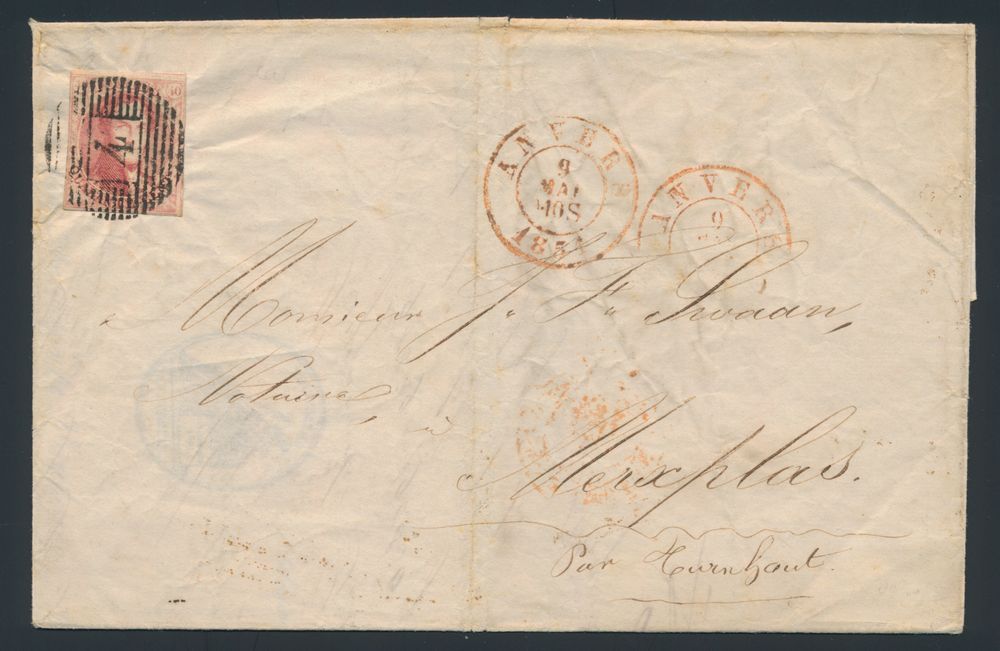 40
4
ANVERS
9
MAI
10S
1851
ANVERS
9
Monsieur J. F. Swaan,
Notaire, à
Merxplas.
Par Turnhout.